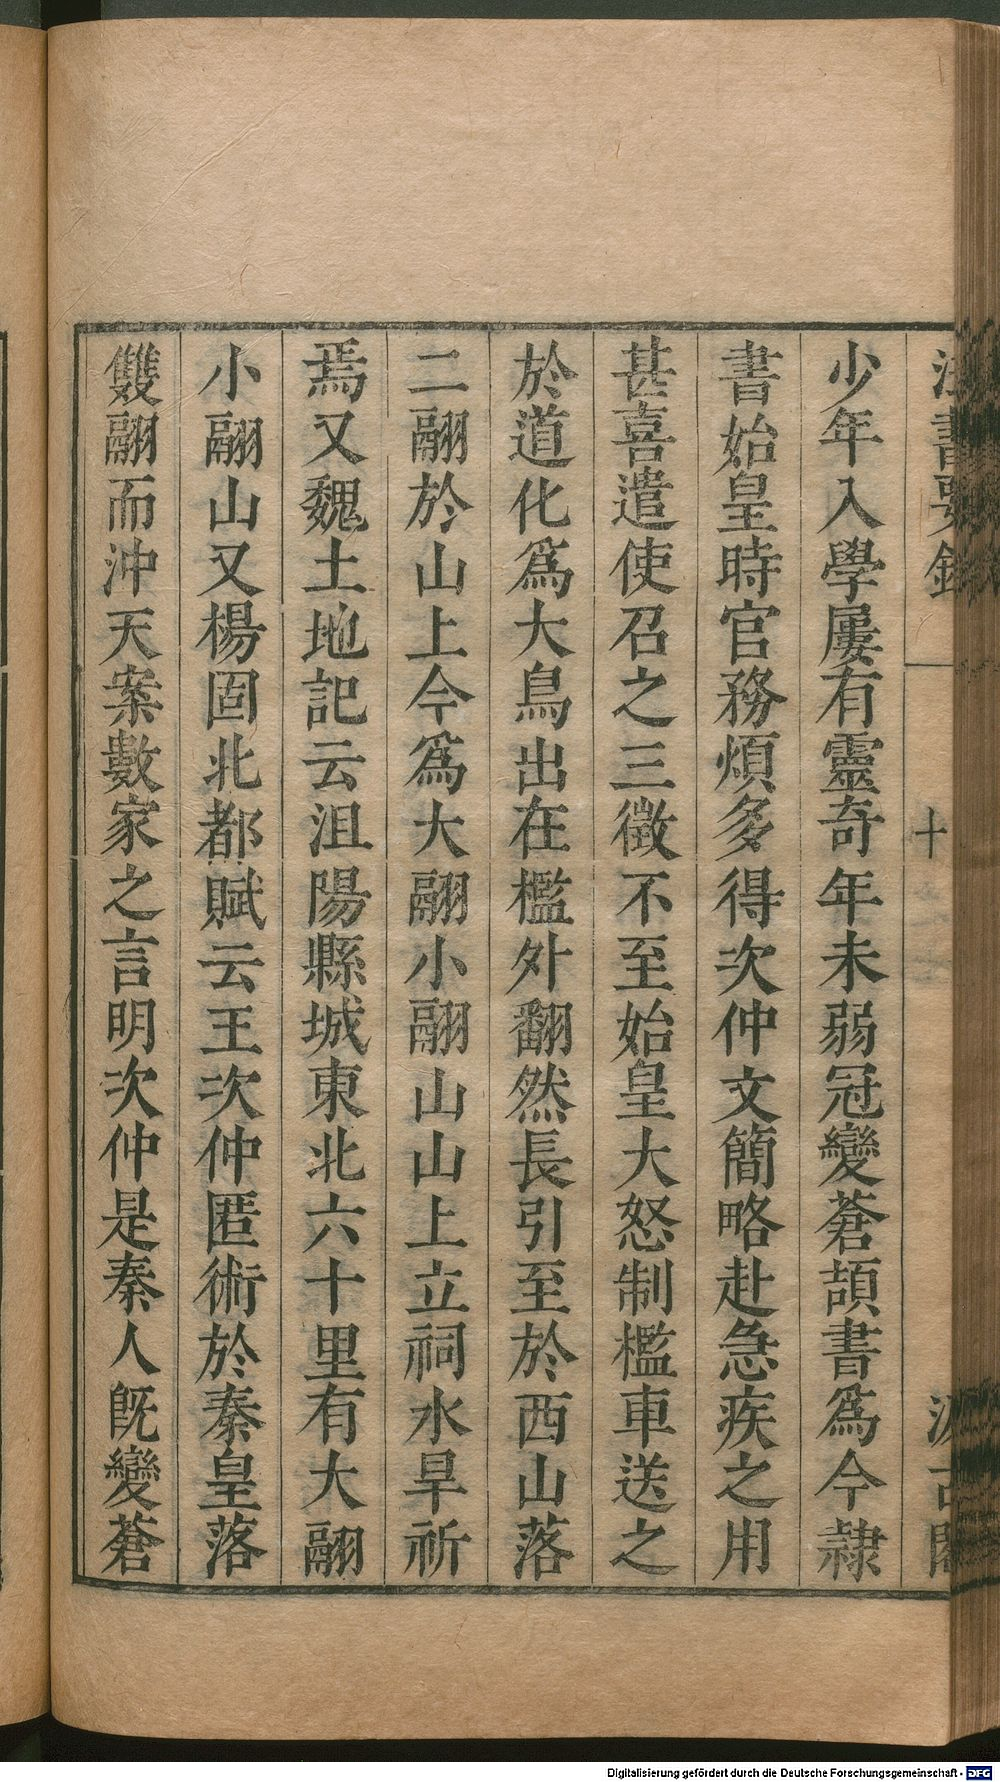 法書要錄
十
汲古閣
少年入學屢有靈奇年未弱冠變蒼頡書爲今隸
書始皇時官務煩多得次仲文簡略赴急疾之用
甚喜遣使召之三徵不至始皇大怒制檻車送之
於道化爲大鳥出在檻外翻然長引至於西山落
二翮於山上今爲大翮小翮山山上立祠水旱祈
焉又魏土地記云沮陽縣城東北六十里有大翮
小翮山又楊固北都賦云王次仲匿術於秦皇落
雙翮而沖天案數家之言明次仲是秦人旣變蒼
Digitalisierung gefördert durch die Deutsche Forschungsgemeinschaft - DFG